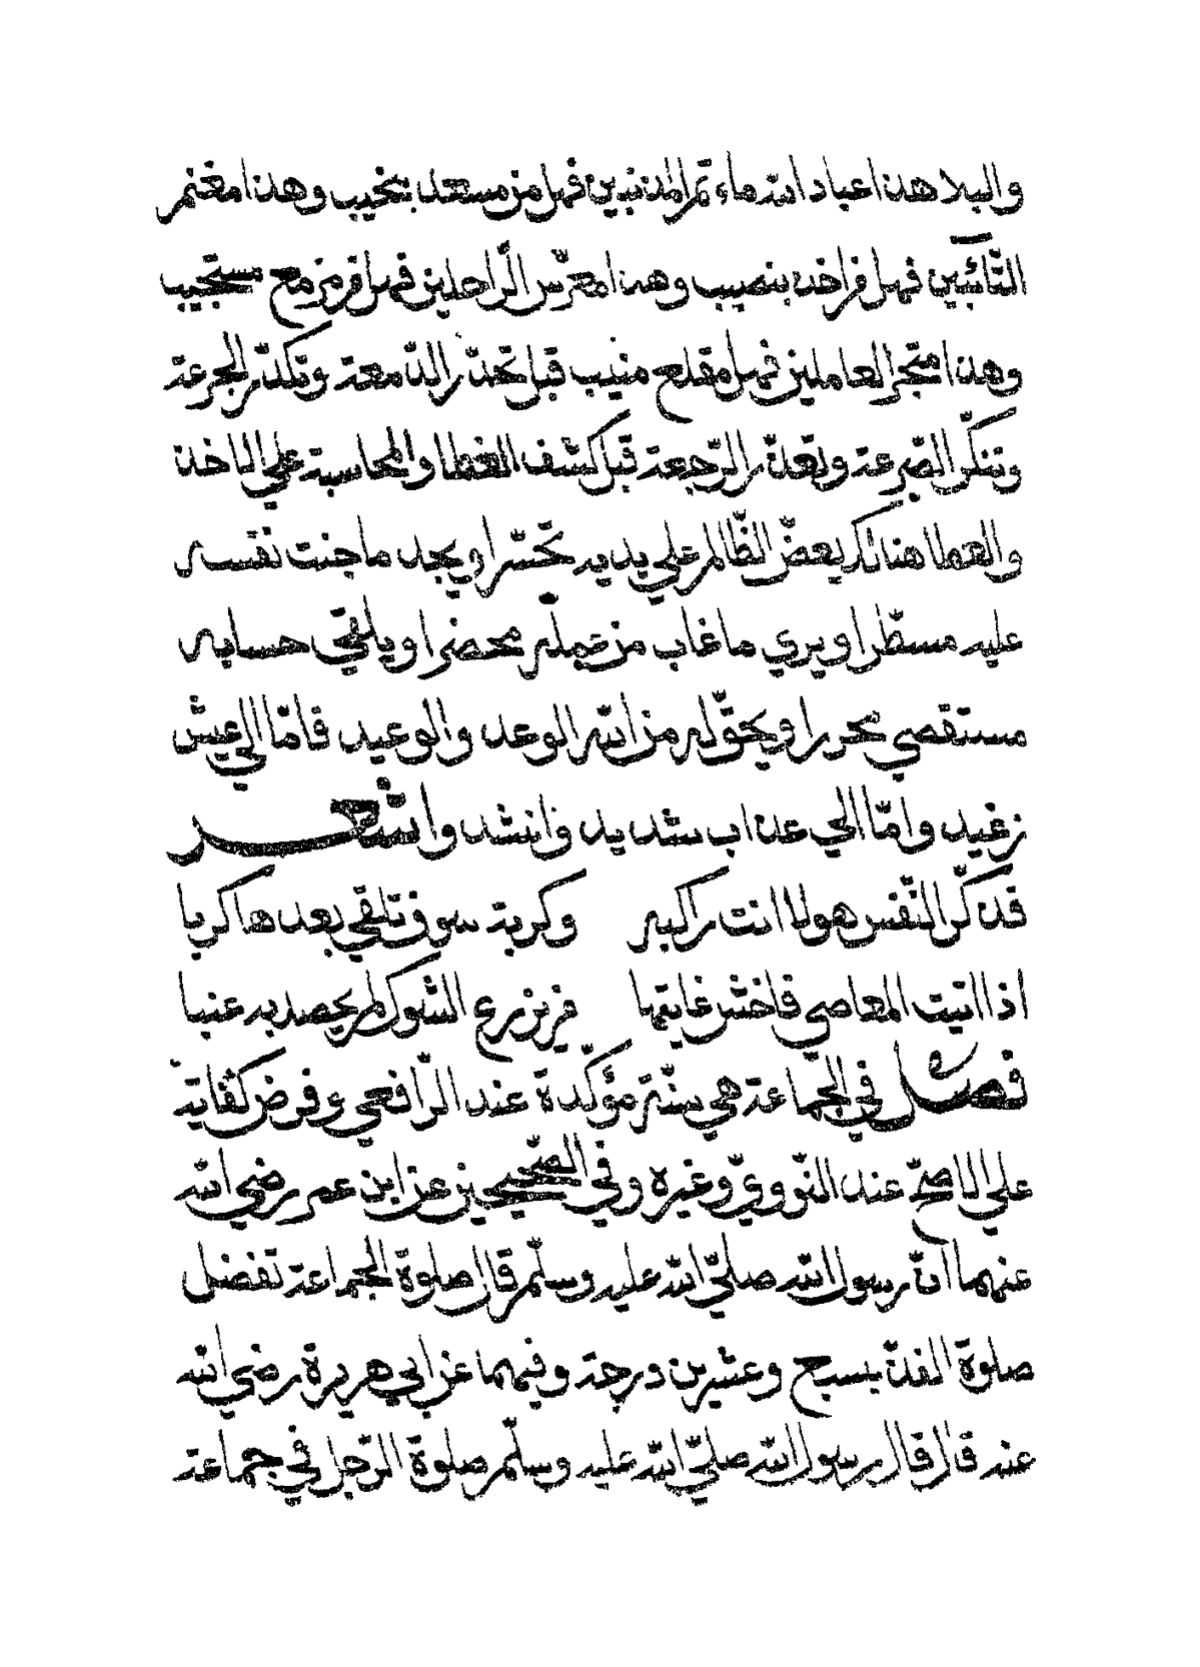 والبلا هذا عباد الله ماءتم المذنبين فهل من مسعد بنخيب وهذا مغنم
التّآئبين فهل فراخذ بنصيب وهذا معرّس الرّاحلين فهل فر مزمع مستجيب
وهذا متجر العاملين فهل مقلع منيب قبل تحدّر الدّمعة وتكدّر الجرعة
وتنكّر الضرعة وتعذّر الرّجعة قبل كشف الغطا والمحاسبة علي الاخذ
والعطا هنالك يعضّ الظّالم علي يديه تحسّرا ويجد ما جنت نفسه
عليه مسطّرا ويري ما غاب من عمله محضرا ويلقي حسابه
مستقصي محررا ويحقّ له من الله الوعد والوعيد فامّا الي عيش
رغيد وامّا الي عذاب شديد وانشد واشعر
قد كّر النّفس هولا انت راكبه وكربة سوف تلقي بعدها كربا
اذا اتيت المعاصي فاخش غايتها فريزرع الشوك لم يحصد به عنبا
فصل في الجّماعة هي سنّة مؤكّدة عند الرّافعي وفرض كفاية
علي الاصحّ عند النّوويّ وغيره وفي الصّحيحين عن ابن عمر رضي الله
عنهما انّ رسول الله صليّ الله عليه وسلّم قال صلوة الجماعة تفضل
صلوة الفذّ بسبع وعشرين درجة وفيهما عن ابي هريرة رضي الله
عنه قال قال رسول الله صليّ الله عليه وسلّم صلوة الرّجل في جماعة